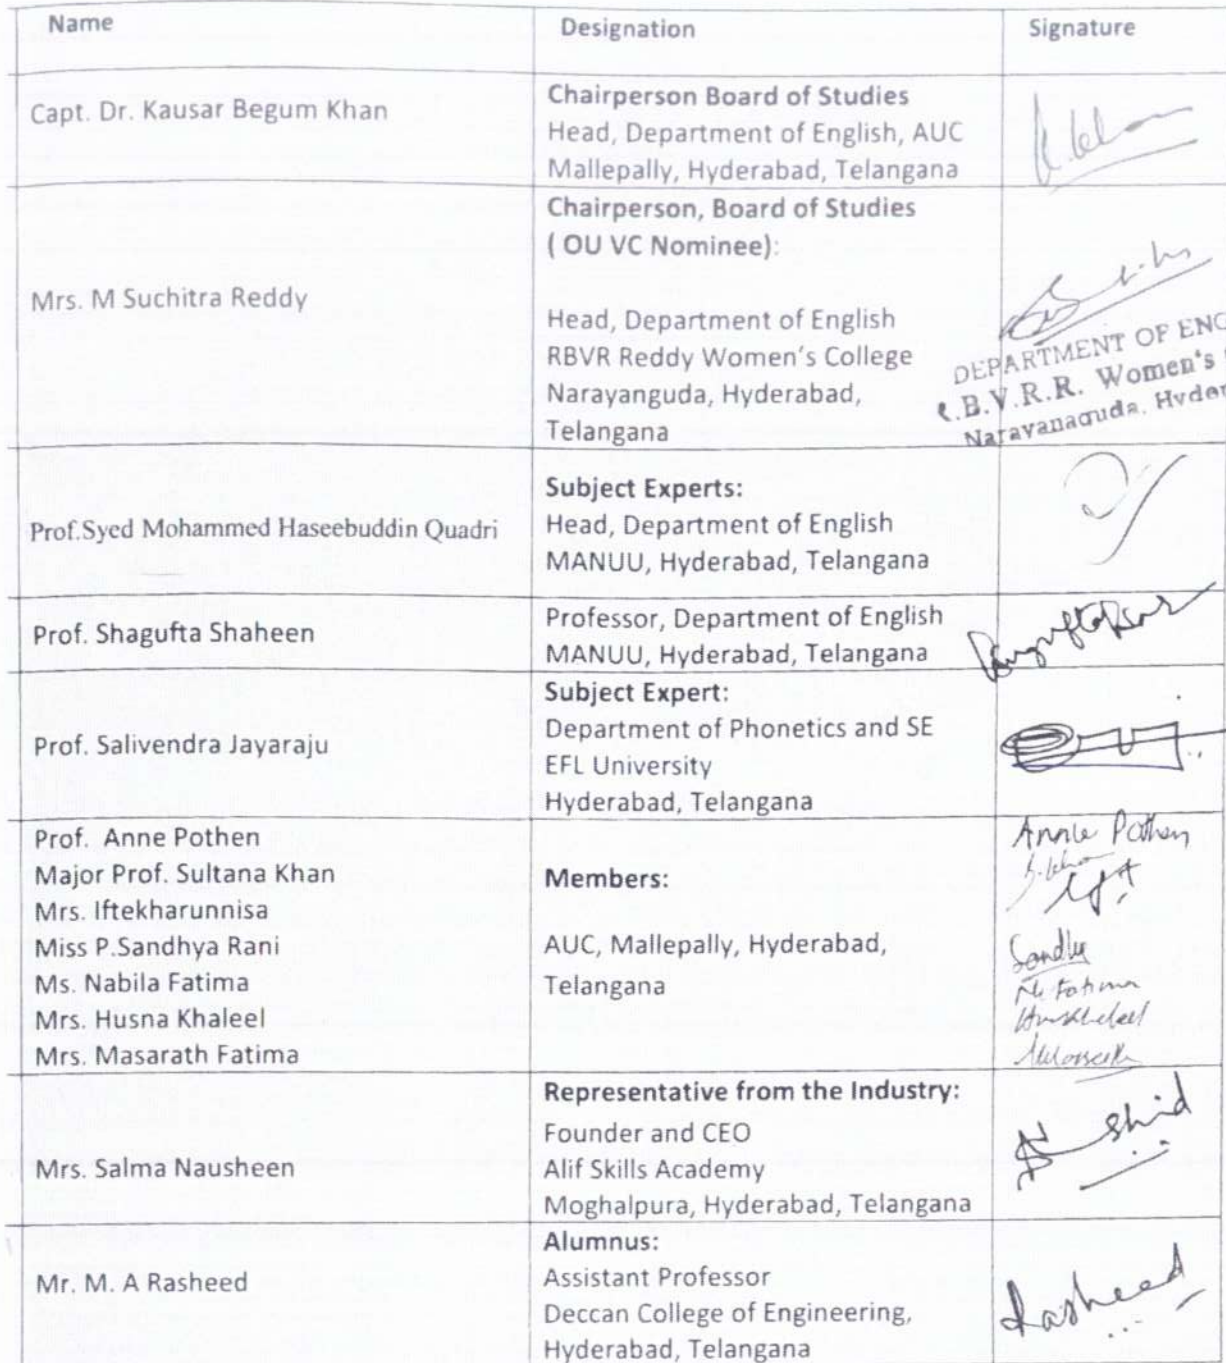 Name
Designation
Signature
Capt. Dr. Kausar Begum Khan
Chairperson Board of Studies
Head, Department of English, AUC
Mallepally, Hyderabad, Telangana
Mrs. M Suchitra Reddy
Chairperson, Board of Studies
( OU VC Nominee):
Head, Department of English
RBVR Reddy Women's College
Narayanguda, Hyderabad,
Telangana
DEPARTMENT OF ENG
.B.V.R.R. Women's
Narayanaguda, Hyder
Prof.Syed Mohammed Haseebuddin Quadri
Subject Experts:
Head, Department of English
MANUU, Hyderabad, Telangana
Prof. Shagufta Shaheen
Professor, Department of English
MANUU, Hyderabad, Telangana
Prof. Salivendra Jayaraju
Subject Expert:
Department of Phonetics and SE
EFL University
Hyderabad, Telangana
Prof. Anne Pothen
Major Prof. Sultana Khan
Mrs. Iftekharunnisa
Miss P.Sandhya Rani
Ms. Nabila Fatima
Mrs. Husna Khaleel
Mrs. Masarath Fatima
Members:
AUC, Mallepally, Hyderabad,
Telangana
Annie Pothen
Fatima
Mrs. Salma Nausheen
Representative from the Industry:
Founder and CEO
Alif Skills Academy
Moghalpura, Hyderabad, Telangana
Mr. M. A Rasheed
Alumnus:
Assistant Professor
Deccan College of Engineering,
Hyderabad, Telangana
Rasheed